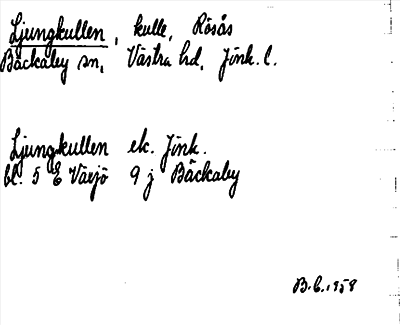 Ljungkullen, kulle, Rösås
Bäckaby sn, Västra hd, Jönk. l.
Ljungkullen ek. Jönk.
bl. 5 E Växjö 9 j Bäckaby
B.C. 1958